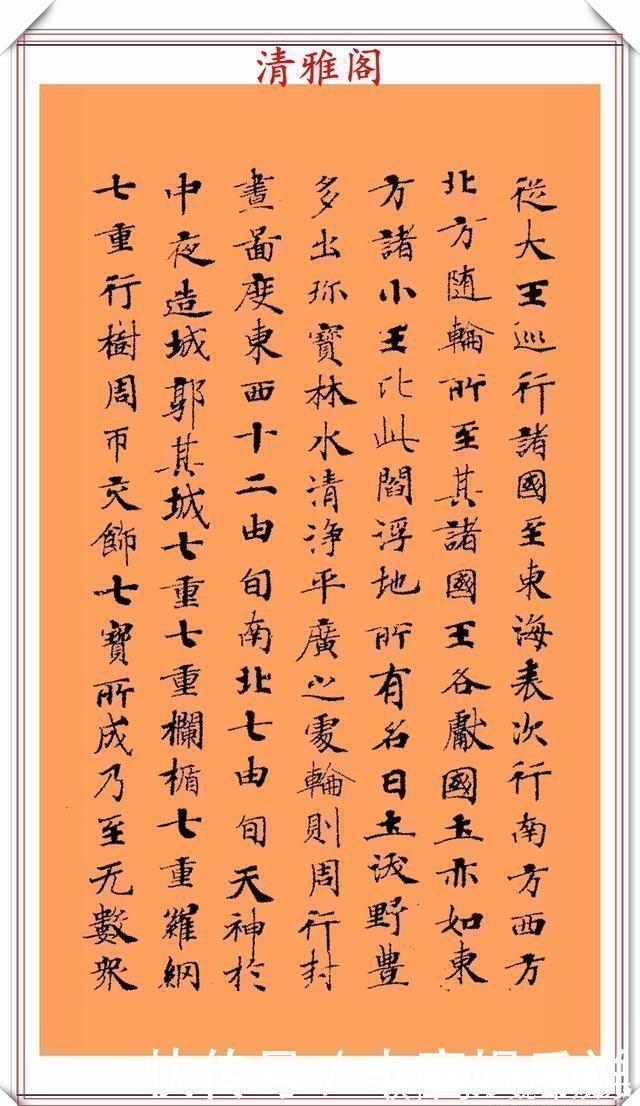 清雅阁
從大王巡行諸國至東海表次行南方西方
北方随輪所至其諸國王各獻國土亦如東
方諸小王比此閻浮地所有名曰土沃野豊
多出珎寶林水清淨平廣之處輪則周行封
畫啚度東西十二由旬南北七由旬天神於
中夜造城郭其城七重七重欄楯七重羅網
七重行樹周帀交飾七寶所成乃至无數衆
快传号